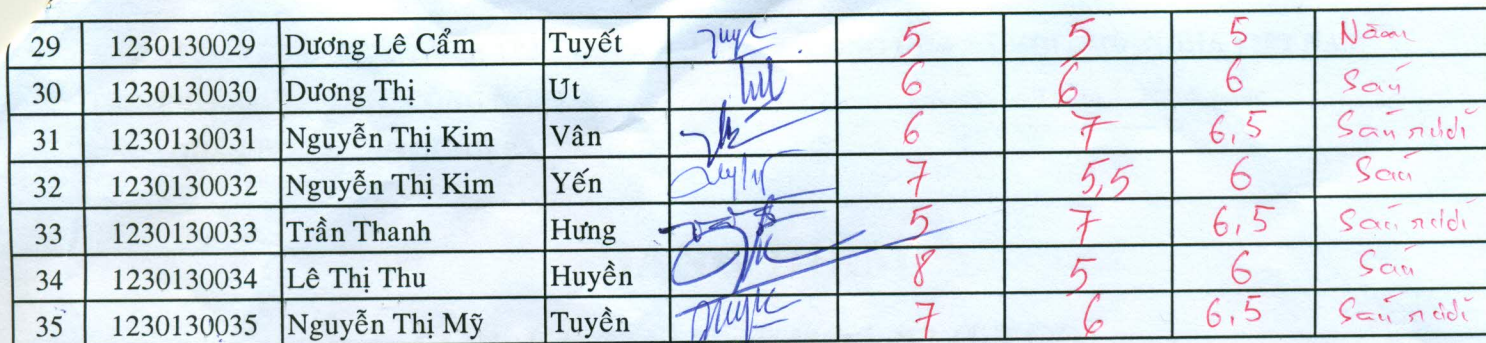 29 1230130029 Dương Lê Cẩm Tuyết 5 5 5 Năm
30 1230130030 Dương Thị Út 6 6 6 Sáu
31 1230130031 Nguyễn Thị Kim Vân 6 7 6,5 Sáu rưỡi
32 1230130032 Nguyễn Thị Kim Yến 7 5,5 6 Sáu
33 1230130033 Trần Thanh Hưng 5 7 6,5 Sáu rưỡi
34 1230130034 Lê Thị Thu Huyền 8 5 6 Sáu
35 1230130035 Nguyễn Thị Mỹ Tuyền 7 6 6,5 Sáu rưỡi